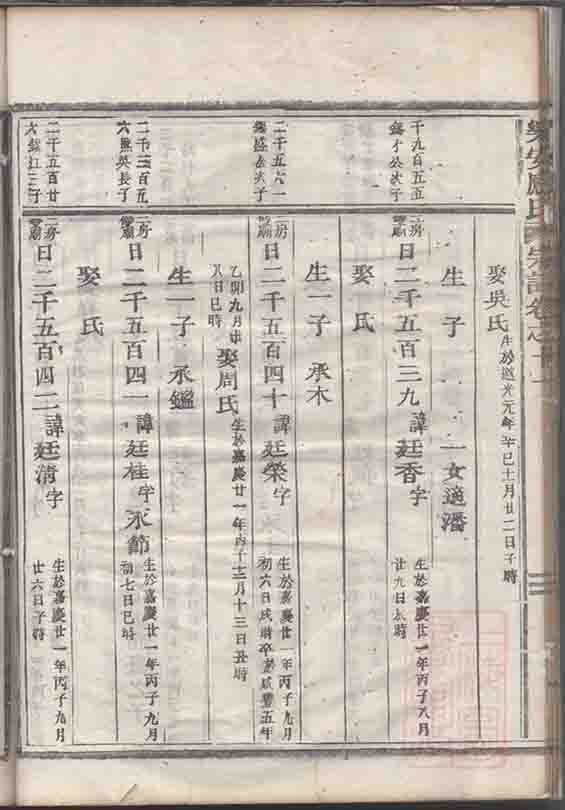 樂安應氏宗譜卷之十一
娶吳氏 生於道光元年辛巳十月廿二日子時
生 子 一女適潘
千九百五五
二房 日二千五百三九 諱廷香 字 生於嘉慶廿一年丙子八月
廿九日辰時
娶 氏
生一子 承木
二千五六一
二房 日二千五百四十 諱廷榮 字 生於嘉慶廿一年丙子九月
初六日戌時卒於咸豐五年
乙卯九月廿
八日巳時 娶周氏 生於嘉慶廿一年丙子十二月十三日丑時
生一子 承鑑
二千三百五
六熙吳長子
二房 日二千五百四一 諱廷桂 字永節 生於嘉慶廿一年丙子九月
初七日巳時
娶 氏
二千五百廿
六 江三子
二房 日二千五百四二 諱廷清 字 生於嘉慶廿一年丙子九月
廿六日子時